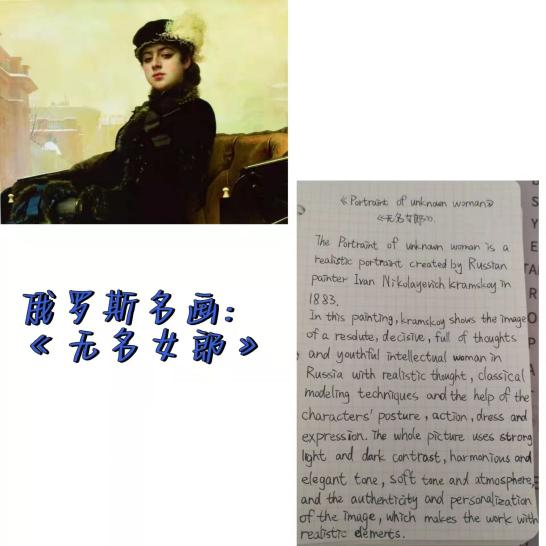 俄罗斯名画：
《无名女郎》
《Portraint of unknown woman》
《无名女郎》.
The Portraint of unknown woman is a
realistic portraint created by Russian
painter Ivan Nikolayevich kramskoy in
1883.
In this painting, kramskoy shows the image
of a resolute, decisive, full of thoughts
and youthful intellectual woman in
Russia with realistic thought, classical
modeling techniques and the help of the
characters' posture, action, dress and
expression. The whole picture uses strong
light and dark contrast, harmonious and
elegant tone, soft tone and atmosphere,
and the authenticity and personalization
of the image, which makes the work with
realistic elements.